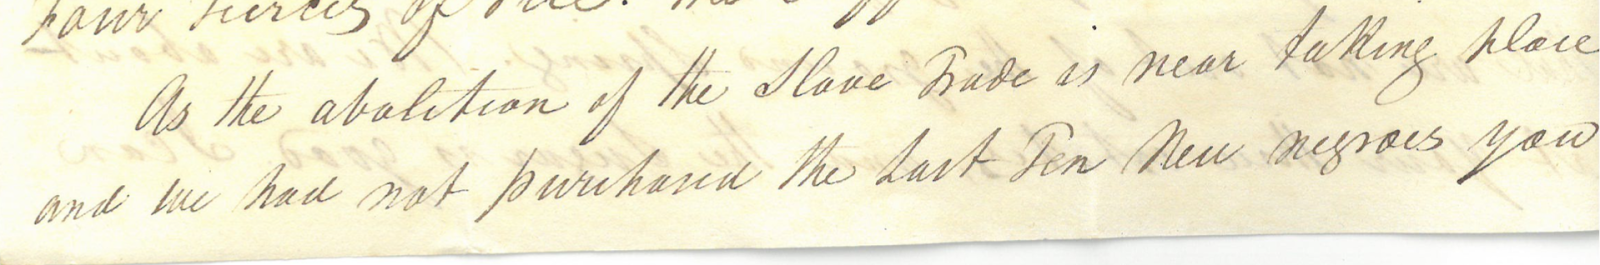 four tierces of
As the abolition of the Slave Trade is near taking place
and we had not purchased the last Ten New negroes you